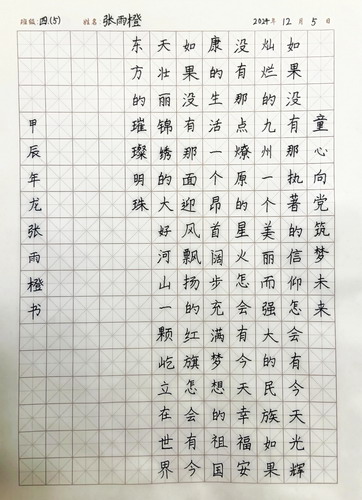 班级:四.(5) 姓名:张雨橙 2024年12月5日
童心向党筑梦未来
如果没有那执著的信仰怎会有今天光辉
灿烂的九州一个美丽而强大的民族如果
没有那点燎原的星火怎会有今天幸福安
康的生活一个昂首阔步充满梦想的祖国
如果没有那面迎风飘扬的红旗怎会有今
天壮丽锦绣的大好河山一颗屹立在世界
东方的璀璨明珠
甲辰年龙张雨橙书